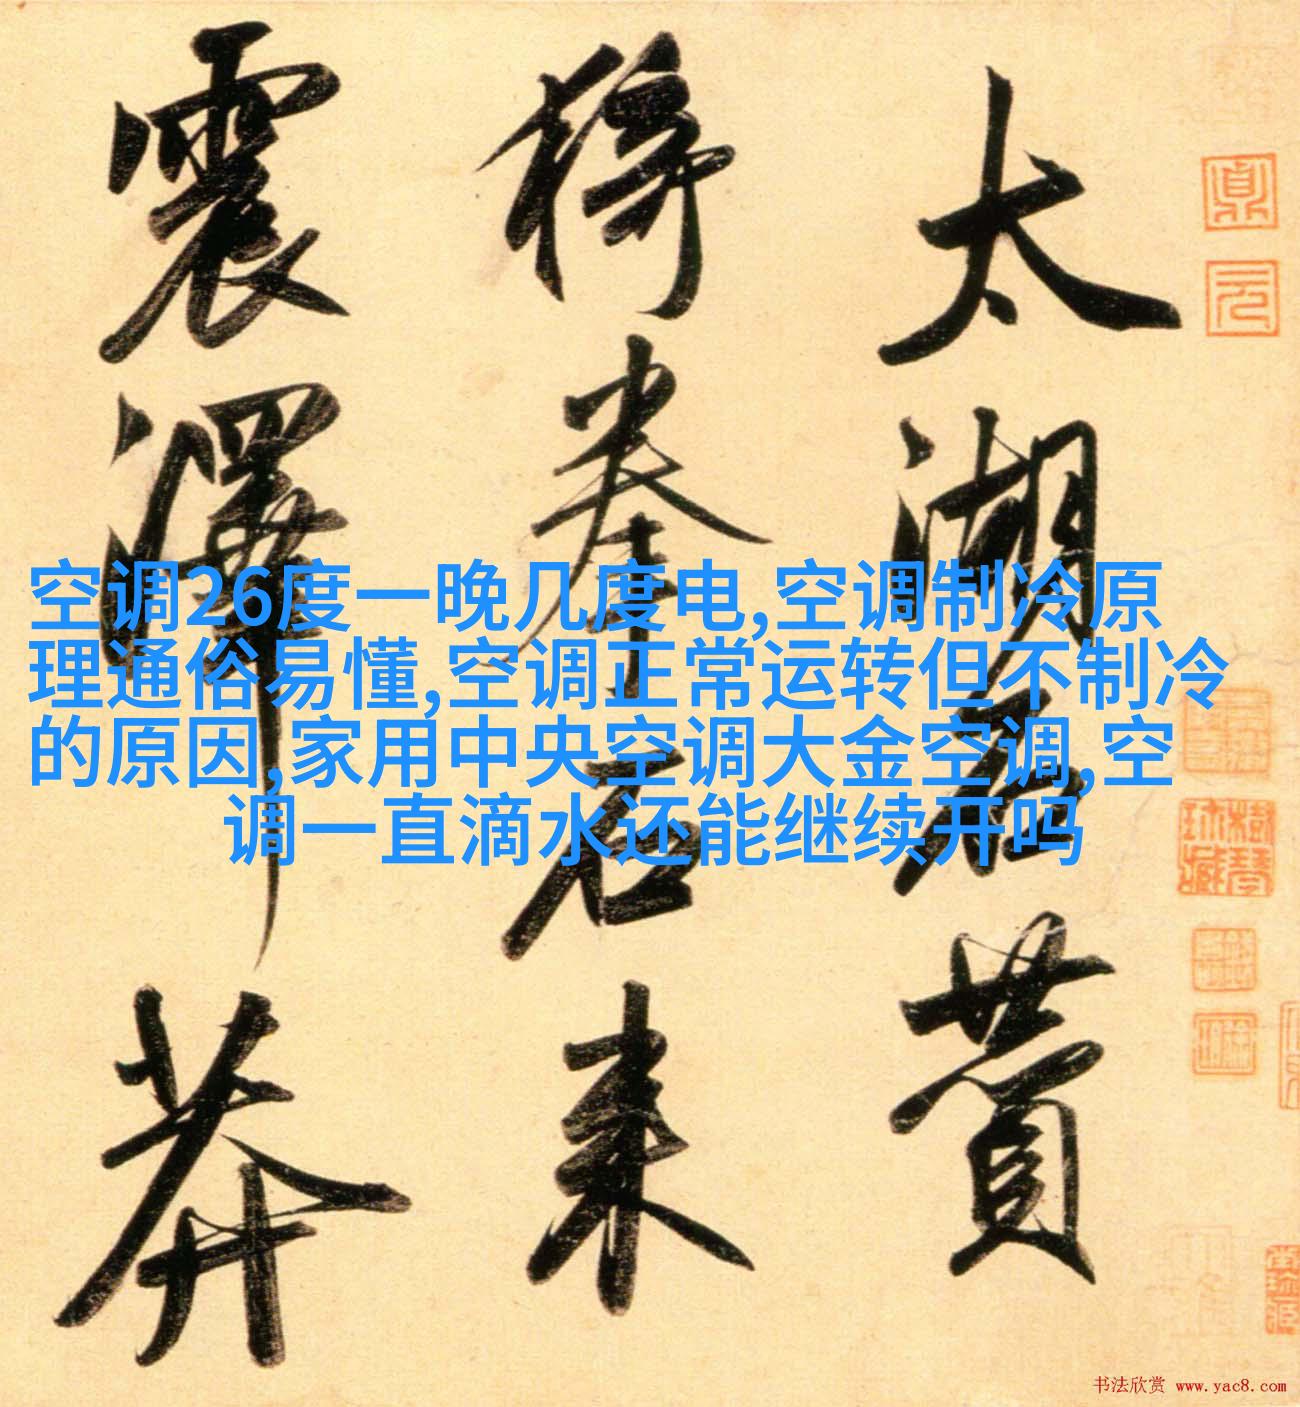 太湖石贊
猗拳石來
震澤莽
空调26度一晚几度电,空调制冷原
理通俗易懂,空调正常运转但不制冷
的原因,家用中央空调大金空调,空
调一直滴水还能继续开吗
书法欣赏 www.yac8.com